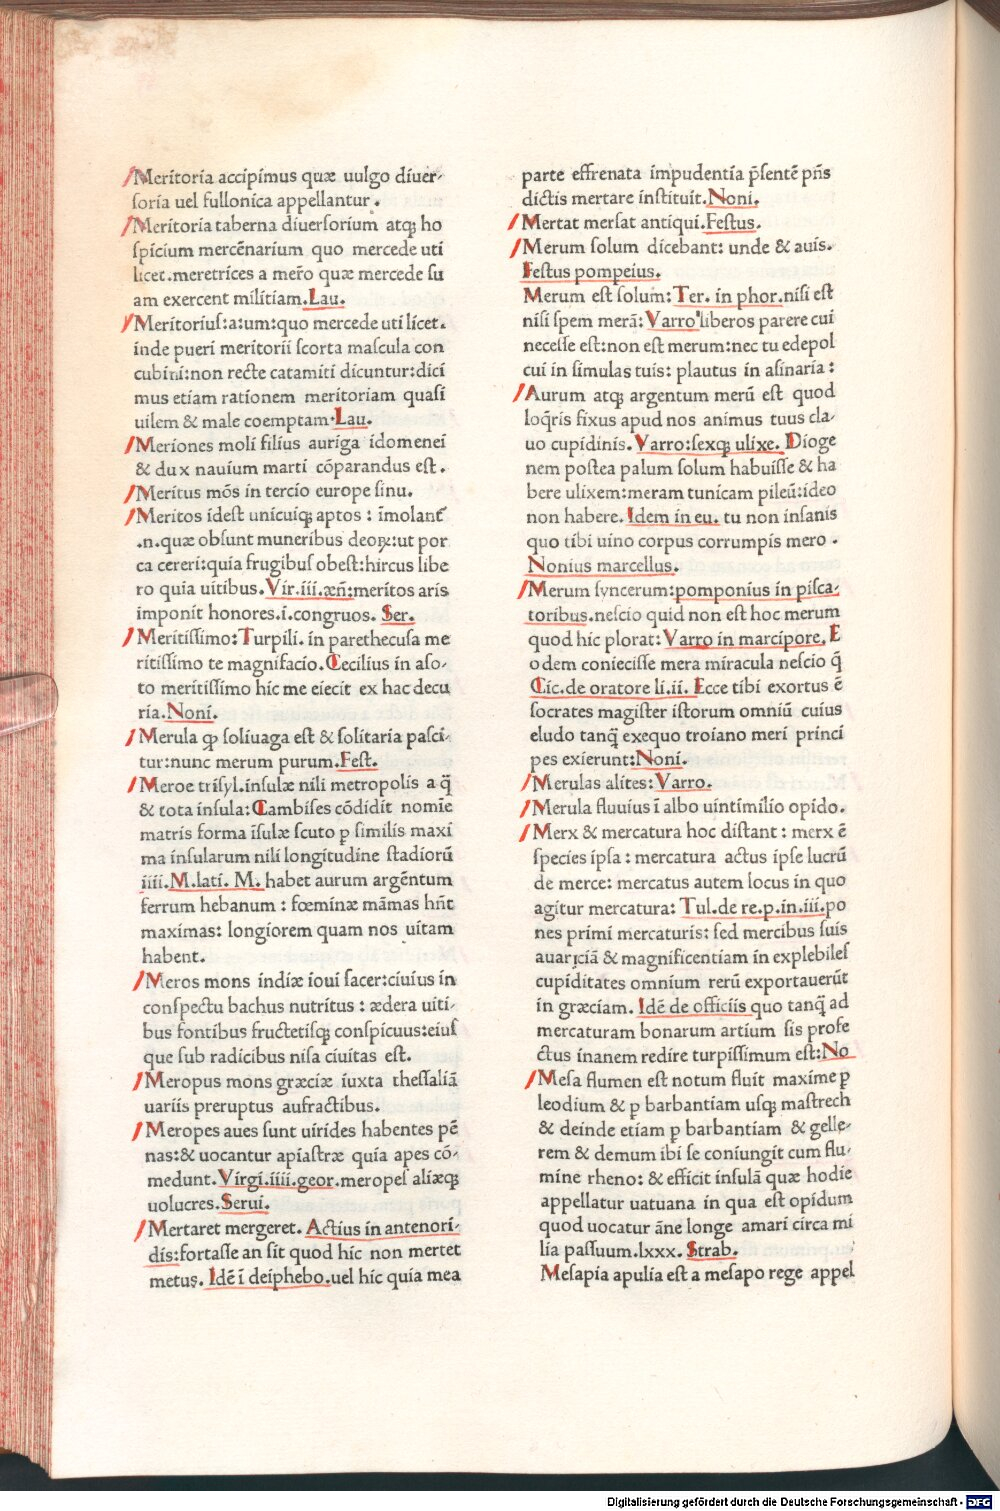 Meritoria accipimus quæ uulgo diuer-
soria uel fullonica appellantur.
Meritoria taberna diuersorium atq; ho
spicium mercēnarium quo mercede uti
licet.meretrices a mero quæ mercede su
am exercent militiam.Lau.
Meritorius:a:um:quo mercede uti licet.
inde pueri meritorii scorta mascula con
cubini:non recte catamiti dicuntur:dici
mus etiam rationem meritoriam quasi
uilem & male coemptam.Lau.
Meriones moli filius auriga idomenei
& dux nauium marti cōparandus est.
Meritus mōs in tercio europe sinu.
Meritos idest unicuiq; aptos : īmolant
.n.quæ obsunt muneribus deoꝝ:ut por
ca cereri:quia frugibus obest:hircus libe
ro quia uitibus.Vir.iii.æn̄:meritos aris
imponit honores.i.congruos. Ser.
Meritissimo:Turpili. in parethecusa me
ritissimo te magnifacio.Cecilius in aso-
to meritissimo hic me eiecit ex hac decu
ria.Noni.
Merula ꝙ soliuaga est & solitaria pasci-
tur:nunc merum purum.Fest.
Meroe trisyl.insulæ nili metropolis a q̄
& tota insula:Cambises cōdidit nomīe
matris forma īsulæ scuto ꝑ similis maxi
ma insularum nili longitudine stadiorū
iiii.M.lati. M. habet aurum argēntum
ferrum hebanum : fœminæ māmas hn̄t
maximas: longiorem quam nos uitam
habent.
Meros mons indiæ ioui sacer:ciuius in
conspectu bachus nutritus : ædera uiti-
bus fontibus fructetisq; conspicuus:eius
que sub radicibus nisa ciuitas est.
Meropus mons græciæ iuxta thessaliā
uariis preruptus aufractibus.
Meropes aues sunt uirides habentes pē
nas:& uocantur apiastræ quia apes cō-
medunt.Virgi.iiii.geor.meropes aliæq;
uolucres.Serui.
Mertaret mergeret. Actius in antenori-
dis:fortasse an sit quod hic non mertet
metus. Idē ī deiphebo.uel hic quia mea
parte effrenata impudentia p̄sentē pn̄s
dictis mertare instituit.Noni.
Mertat mersat antiqui.Festus.
Merum solum dicebant: unde & auis.
Festus pompeius.
Merum est solum: Ter. in phor.nisi est
nisi spem merā: Varro liberos parere cui
necesse est:non est merum:nec tu edepol
cui in simulas tuis: plautus in asinaria :
Aurum atq; argentum merū est quod
loq̄ris fixus apud nos animus tuus cla-
uo cupidinis. Varro:sexq; ulixe. Dioge
nem postea palum solum habuisse & ha
bere ulixem:meram tunicam pileū:ideo
non habere. Idem in eu. tu non insanis
quo tibi uino corpus corrumpis mero .
Nonius marcellus.
Merum syncerum:pomponius in pisca-
toribus.nescio quid non est hoc merum
quod hic plorat: Varro in marcipore. E
odem coniecisse mera miracula nescio q̄
Cic.de oratore li.ii. Ecce tibi exortus ē
socrates magister istorum omniū cuius
eludo tanq̄ exequo troiano meri princi
pes exierunt:Noni.
Merulas alites: Varro.
Merula fluuius ī albo uintimilio opido.
Merx & mercatura hoc distant : merx ē
species ipsa : mercatura actus ipse lucrū
de merce: mercatus autem locus in quo
agitur mercatura: Tul.de re.p.in.iii.po
nes primi mercaturis: sed mercibus suis
auariciā & magnificentiam in explebiles
cupiditates omnium rerū exportauerūt
in græciam. Idē de officiis quo tanq̄ ad
mercaturam bonarum artium sis profe
ctus inanem redire turpissimum est:No
Mesa flumen est notum fluit maxime ꝑ
leodium & ꝑ barbantiam usq; mastrech
& deinde etiam ꝑ barbantiam & gelle-
rem & demum ibi se coniungit cum flu-
mine rheno: & efficit insulā quæ hodie
appellatur uatuana in qua est opidum
quod uocatur āne longe amari circa mi
lia passuum.lxxx. Strab.
Mesapia apulia est a mesapo rege appel
Digitalisierung gefördert durch die Deutsche Forschungsgemeinschaft - DFG